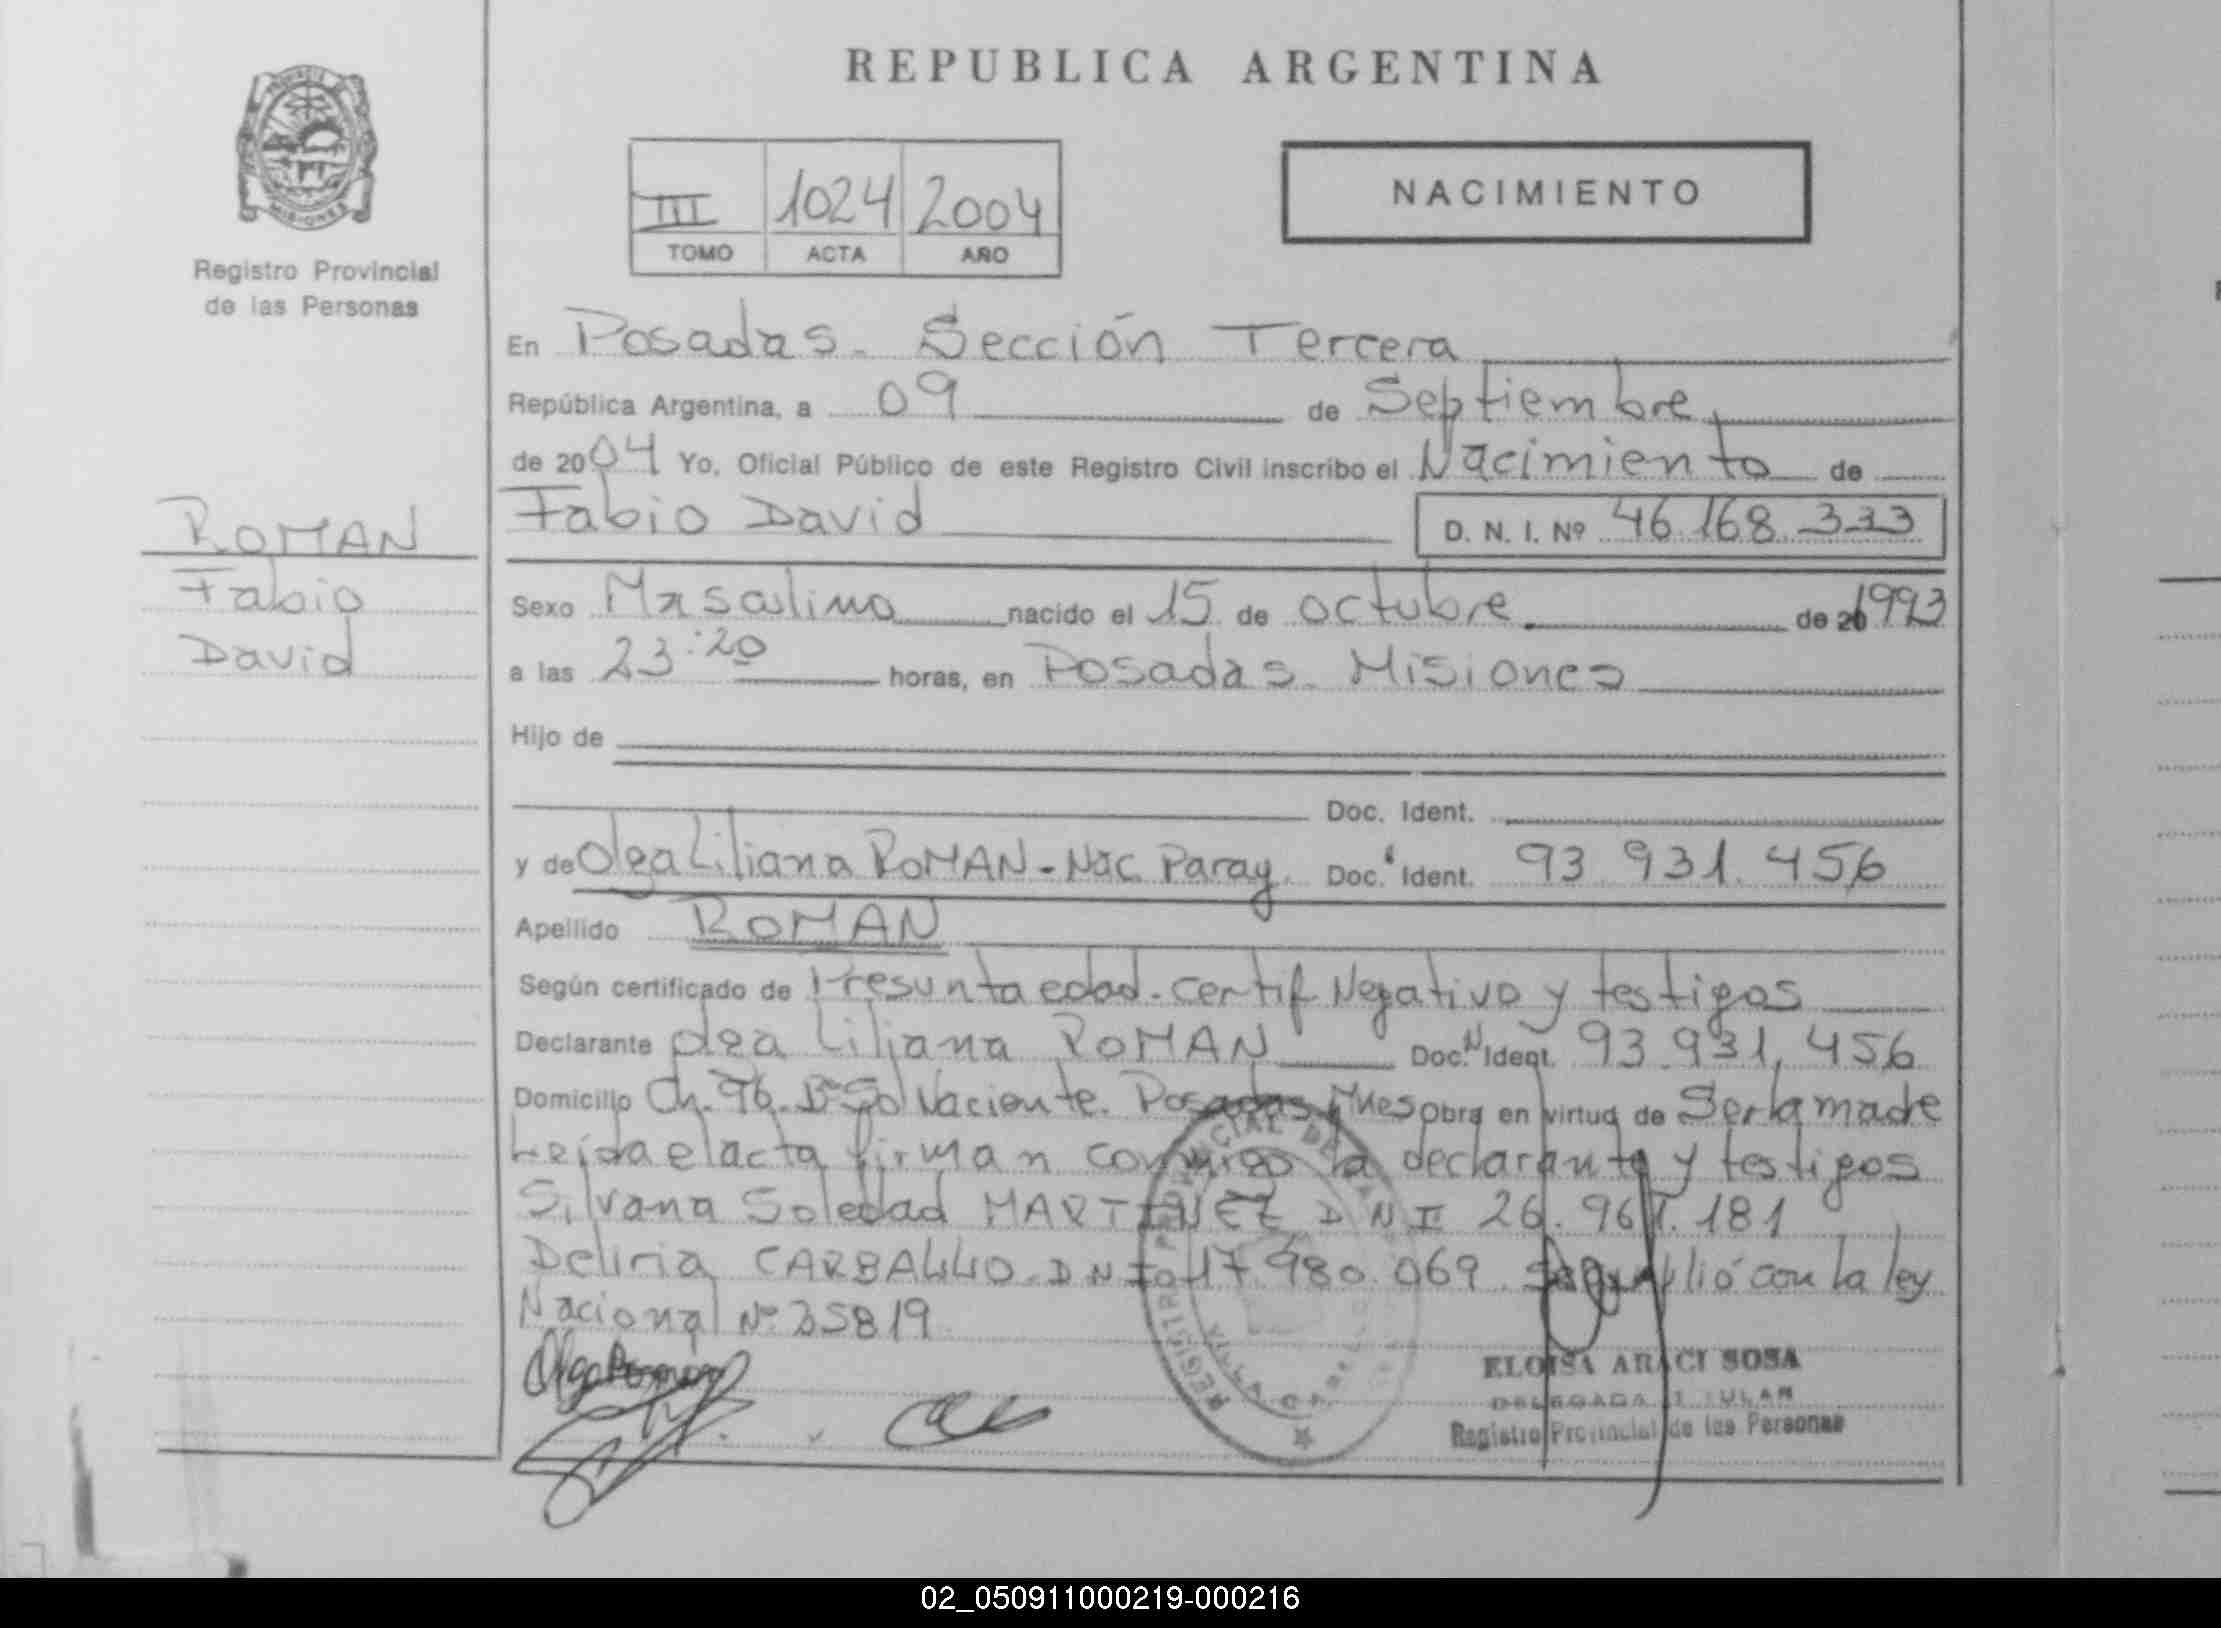 REPUBLICA ARGENTINA
III 1024 2004
TOMO ACTA AÑO
NACIMIENTO
MISIONES
Registro Provincial
de las Personas
ROMAN
Fabio
David
En Posadas - Sección Tercera
República Argentina, a 09 de Septiembre
de 2004 Yo, Oficial Público de este Registro Civil inscribo el Nacimiento de
Fabio David D. N. I. Nº 46.168.333
Sexo Masculino nacido el 15 de octubre de 20 1993
a las 23:20 horas, en Posadas - Misiones
Hijo de
Doc. Ident.
y de Olga Liliana ROMAN - Nac. Paray. Doc. Ident. 93.931.456
Apellido ROMAN
Según certificado de Presunta edad - certif Negativo y testigos
Declarante Olga Liliana ROMAN Doc. Ident. 93.931.456
Domicilio Ch. 96. Bº Sol Naciente. Posadas Mnes obra en virtud de Ser la madre
Leída el acta firman conmigo la declarante y testigos
Silvana Soledad MARTINEZ DNI 26.961.181
Deliria CARBALLO DNI 17.980.069 Se cumplió con la ley
Nacional Nº 25819
Olga Roman
REGISTRO PROVINCIAL DE LAS
VILLA CABELLO
ELOISA ARACI SOSA
DELEGADA TITULAR
Registro Provincial de las Personas
02_050911000219-000216